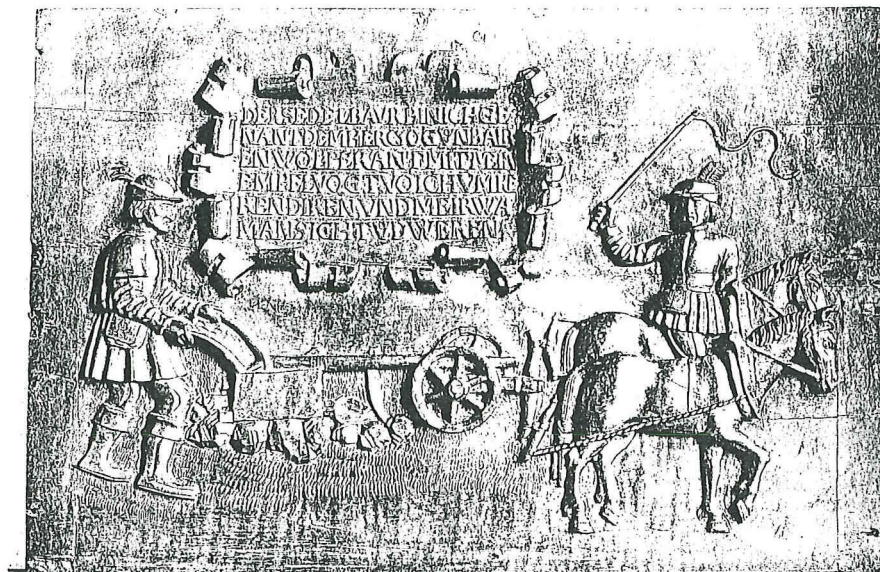 DER EDEL BAVR BIN ICH GE
NANT DEM BERGOGVN BAR
EN WOL BEKANT MIT MEIN
EM PFLVOG TVO ICH VMK
REN VND MEIR WA
MAN SICH TVD WEREN